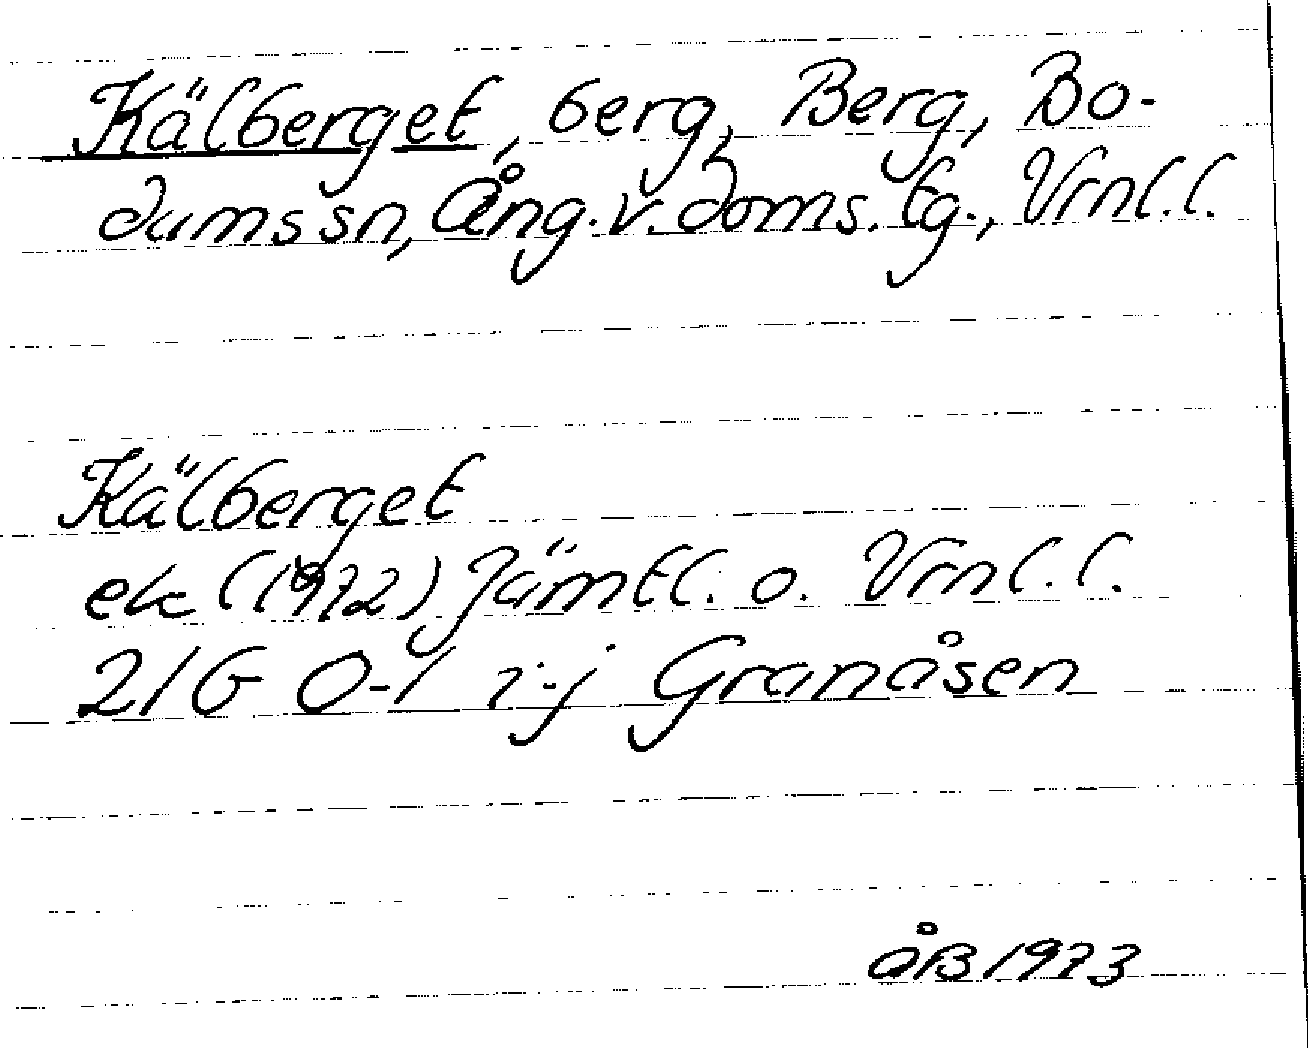 Kälberget, berg, Berg, Bo-
dums sn, Ång. v. doms. tg., Vrnl. l.
Kälberget
ek (1972) Jämtl. o. Vrnl. l.
21G 0-1 i-j Granåsen
ÅB 1973